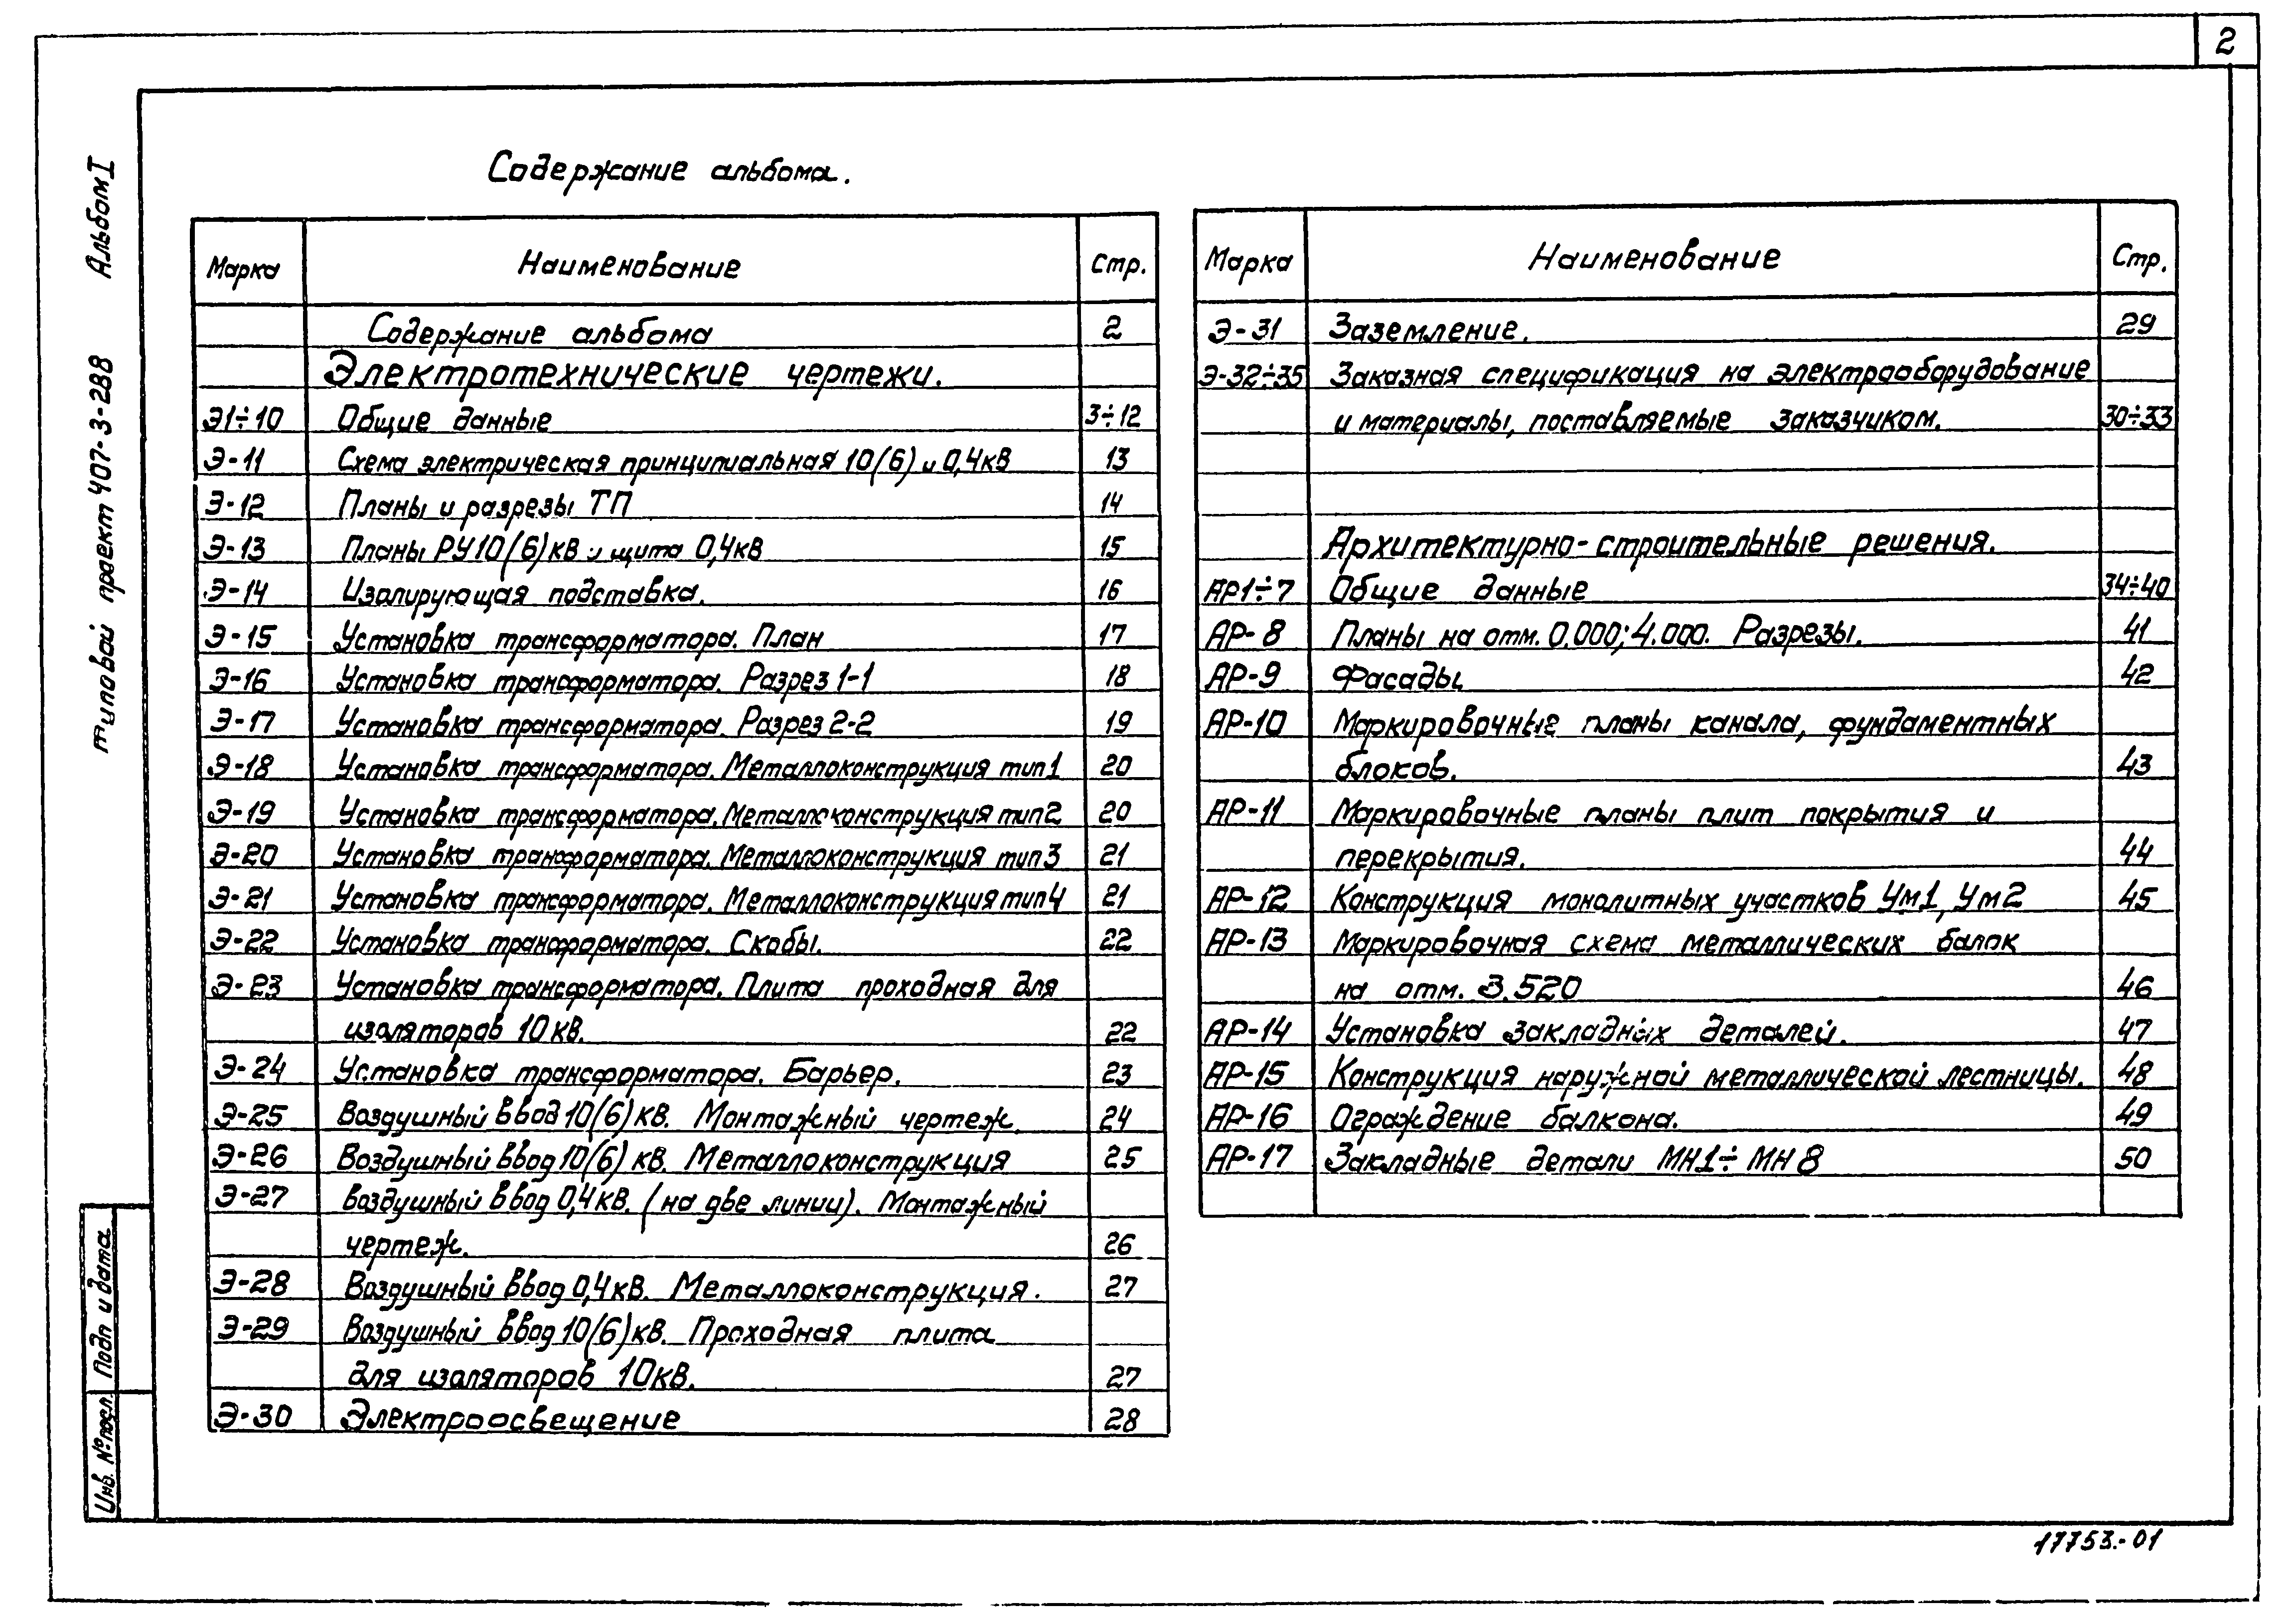 2
Альбом I
типовой проект 407-3-288
Содержание альбома.
Марка Наименование Стр.
Содержание альбома 2
Электротехнические чертежи.
Э1÷10 Общие данные 3÷12
Э-11 Схема электрическая принципиальная 10(6) и 0,4кВ 13
Э-12 Планы и разрезы ТП 14
Э-13 Планы РУ10(6)кВ и щита 0,4кВ 15
Э-14 Изолирующая подставка. 16
Э-15 Установка трансформатора. План 17
Э-16 Установка трансформатора. Разрез 1-1 18
Э-17 Установка трансформатора. Разрез 2-2 19
Э-18 Установка трансформатора. Металлоконструкция тип1 20
Э-19 Установка трансформатора. Металлоконструкция тип2 20
Э-20 Установка трансформатора. Металлоконструкция тип3 21
Э-21 Установка трансформатора. Металлоконструкция тип4 21
Э-22 Установка трансформатора. Скобы. 22
Э-23 Установка трансформатора. Плита проходная для
изоляторов 10кВ. 22
Э-24 Установка трансформатора. Барьер. 23
Э-25 Воздушный ввод 10(6)кВ. Монтажный чертеж. 24
Э-26 Воздушный ввод 10(6)кВ. Металлоконструкция 25
Э-27 Воздушный ввод 0,4кВ. (на две линии). Монтажный
чертеж. 26
Э-28 Воздушный ввод 0,4кВ. Металлоконструкция. 27
Э-29 Воздушный ввод 10(6)кВ. Проходная плита
для изоляторов 10кВ. 27
Э-30 Электроосвещение 28
Марка Наименование Стр.
Э-31 Заземление. 29
Э-32÷35 Заказная спецификация на электрооборудование
и материалы, поставляемые заказчиком. 30÷33
Архитектурно-строительные решения.
АР1÷7 Общие данные 34÷40
АР-8 Планы на отм. 0.000; 4.000. Разрезы. 41
АР-9 Фасады 42
АР-10 Маркировочные планы канала, фундаментных
блоков. 43
АР-11 Маркировочные планы плит покрытия и
перекрытия. 44
АР-12 Конструкция монолитных участков Ум1, Ум2 45
АР-13 Маркировочная схема металлических балок
на отм. 3.520 46
АР-14 Установка закладных деталей. 47
АР-15 Конструкция наружной металлической лестницы. 48
АР-16 Ограждение балкона. 49
АР-17 Закладные детали МН1÷МН8 50
Подп и дата
Инв. № посл.
17753-01